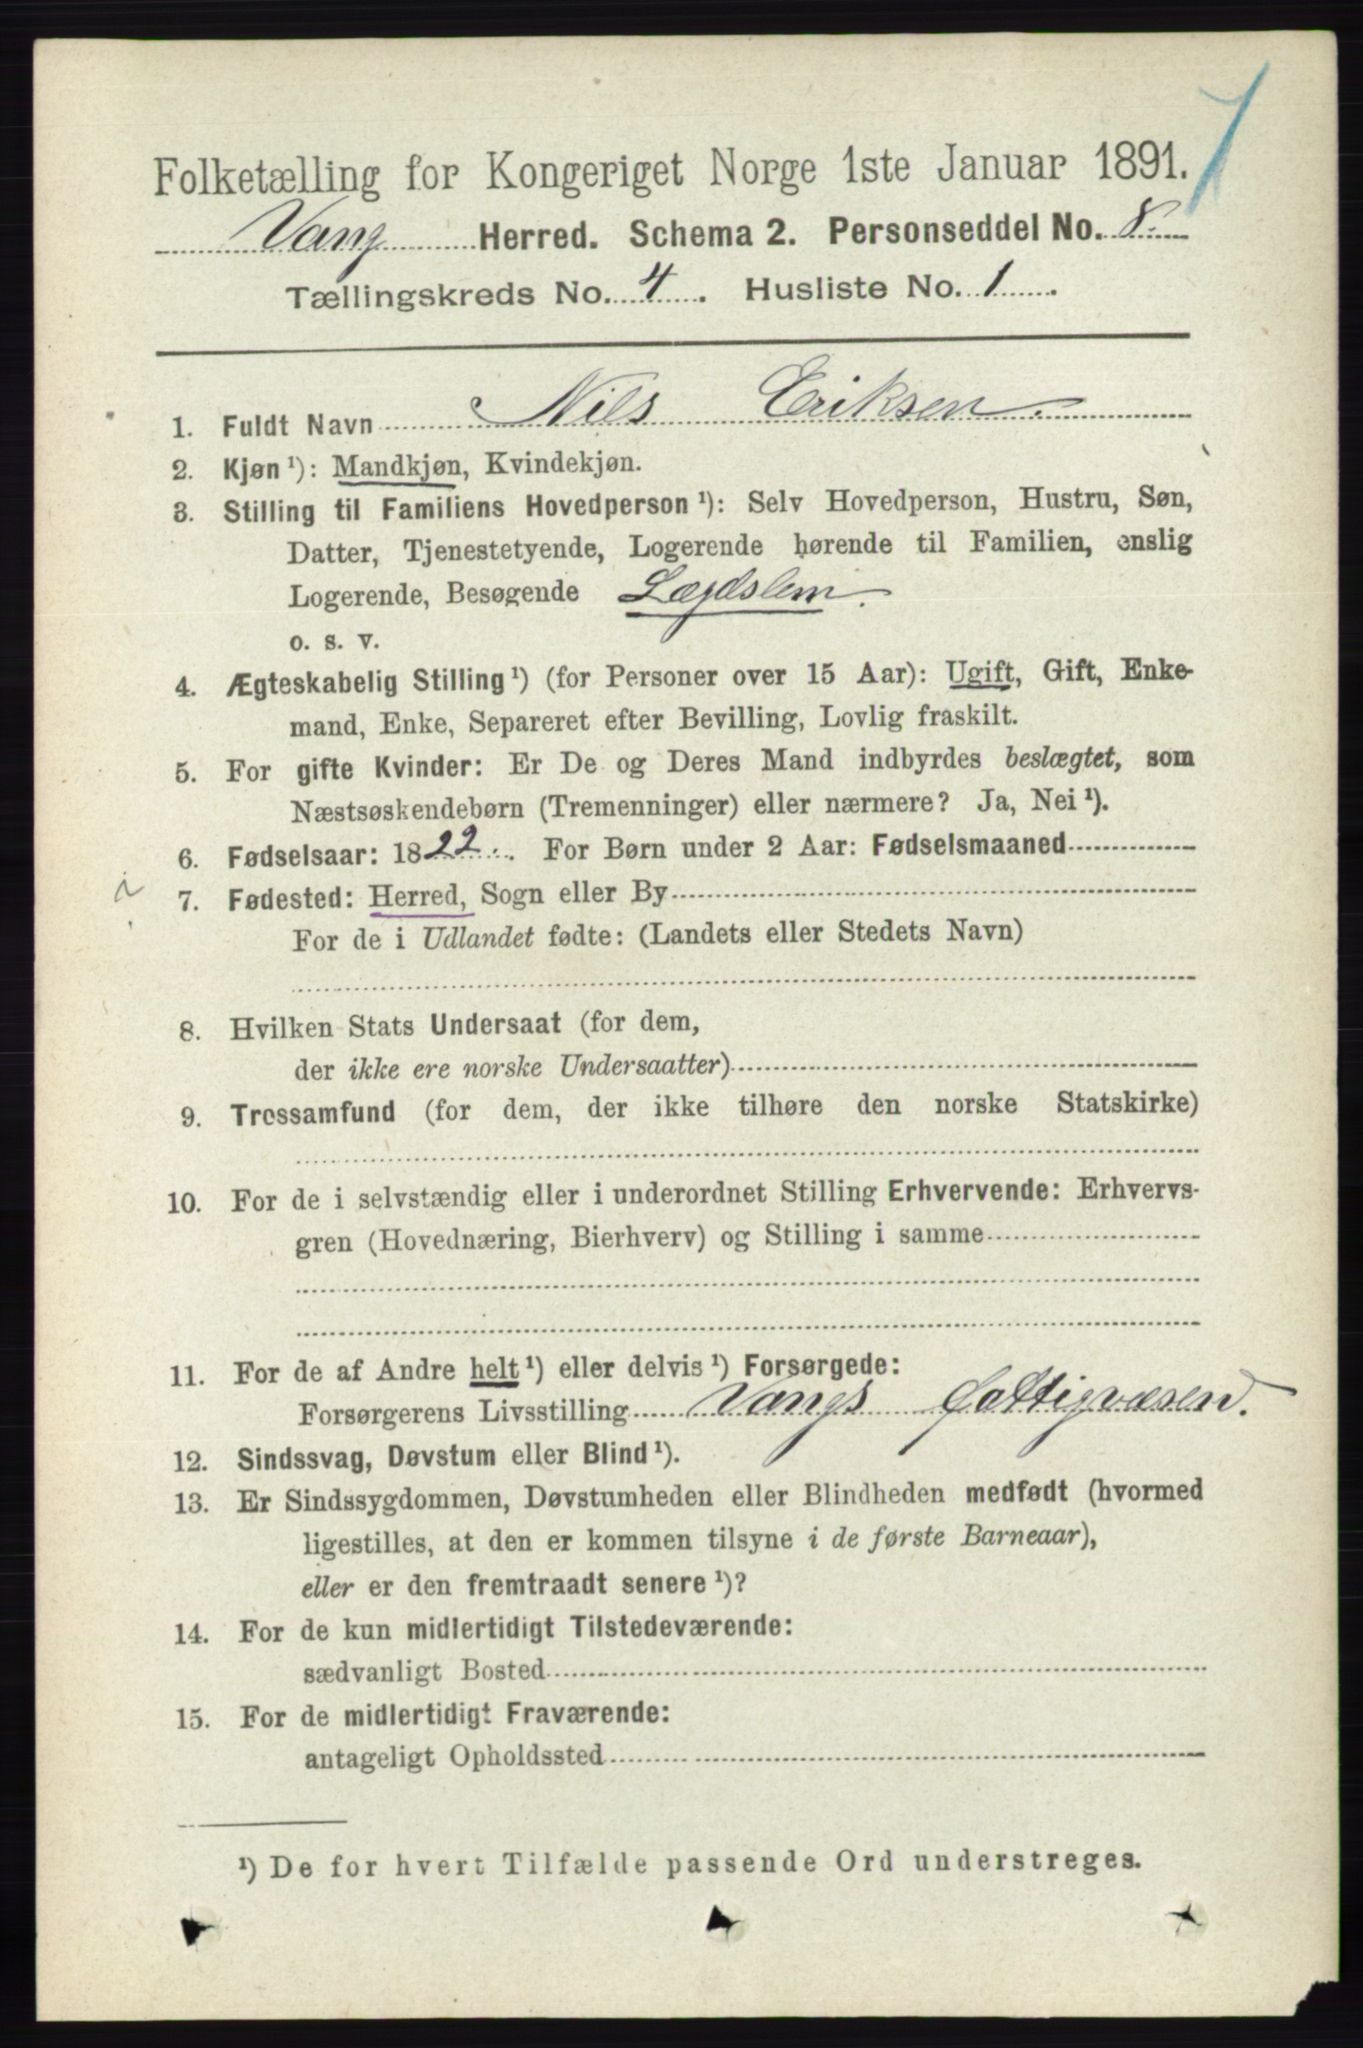 Folketælling for Kongeriget Norge 1ste Januar 1891.
Vang Herred. Schema 2. Personseddel No. 8.
Tællingskreds No. 4. Husliste No. 1.
1. Fuldt Navn Nils Eriksen.
2. Kjøn ¹): Mandkjøn, Kvindekjøn.
3. Stilling til Familiens Hovedperson ¹): Selv Hovedperson, Hustru, Søn,
Datter, Tjenestetyende, Logerende hørende til Familien, enslig
Logerende, Besøgende Lægdslem.
o. s. v.
4. Ægteskabelig Stilling ¹) (for Personer over 15 Aar): Ugift, Gift, Enke-
mand, Enke, Separeret efter Bevilling, Lovlig fraskilt.
5. For gifte Kvinder: Er De og Deres Mand indbyrdes beslægtet, som
Næstsøskendebørn (Tremenninger) eller nærmere? Ja, Nei ¹).
6. Fødselsaar: 1822. For Børn under 2 Aar: Fødselsmaaned
7. Fødested: Herred, Sogn eller By
For de i Udlandet fødte: (Landets eller Stedets Navn)
8. Hvilken Stats Undersaat (for dem,
der ikke ere norske Undersaatter)
9. Trossamfund (for dem, der ikke tilhøre den norske Statskirke)
10. For de i selvstændig eller i underordnet Stilling Erhvervende: Erhvervs-
gren (Hovednæring, Bierhverv) og Stilling i samme
11. For de af Andre helt ¹) eller delvis ¹) Forsørgede:
Forsørgerens Livsstilling Vangs Fattigvæsen.
12. Sindssvag, Døvstum eller Blind ¹).
13. Er Sindssygdommen, Døvstumheden eller Blindheden medfødt (hvormed
ligestilles, at den er kommen tilsyne i de første Barneaar),
eller er den fremtraadt senere ¹)?
14. For de kun midlertidigt Tilstedeværende:
sædvanligt Bosted
15. For de midlertidigt Fraværende:
antageligt Opholdssted
¹) De for hvert Tilfælde passende Ord understreges.